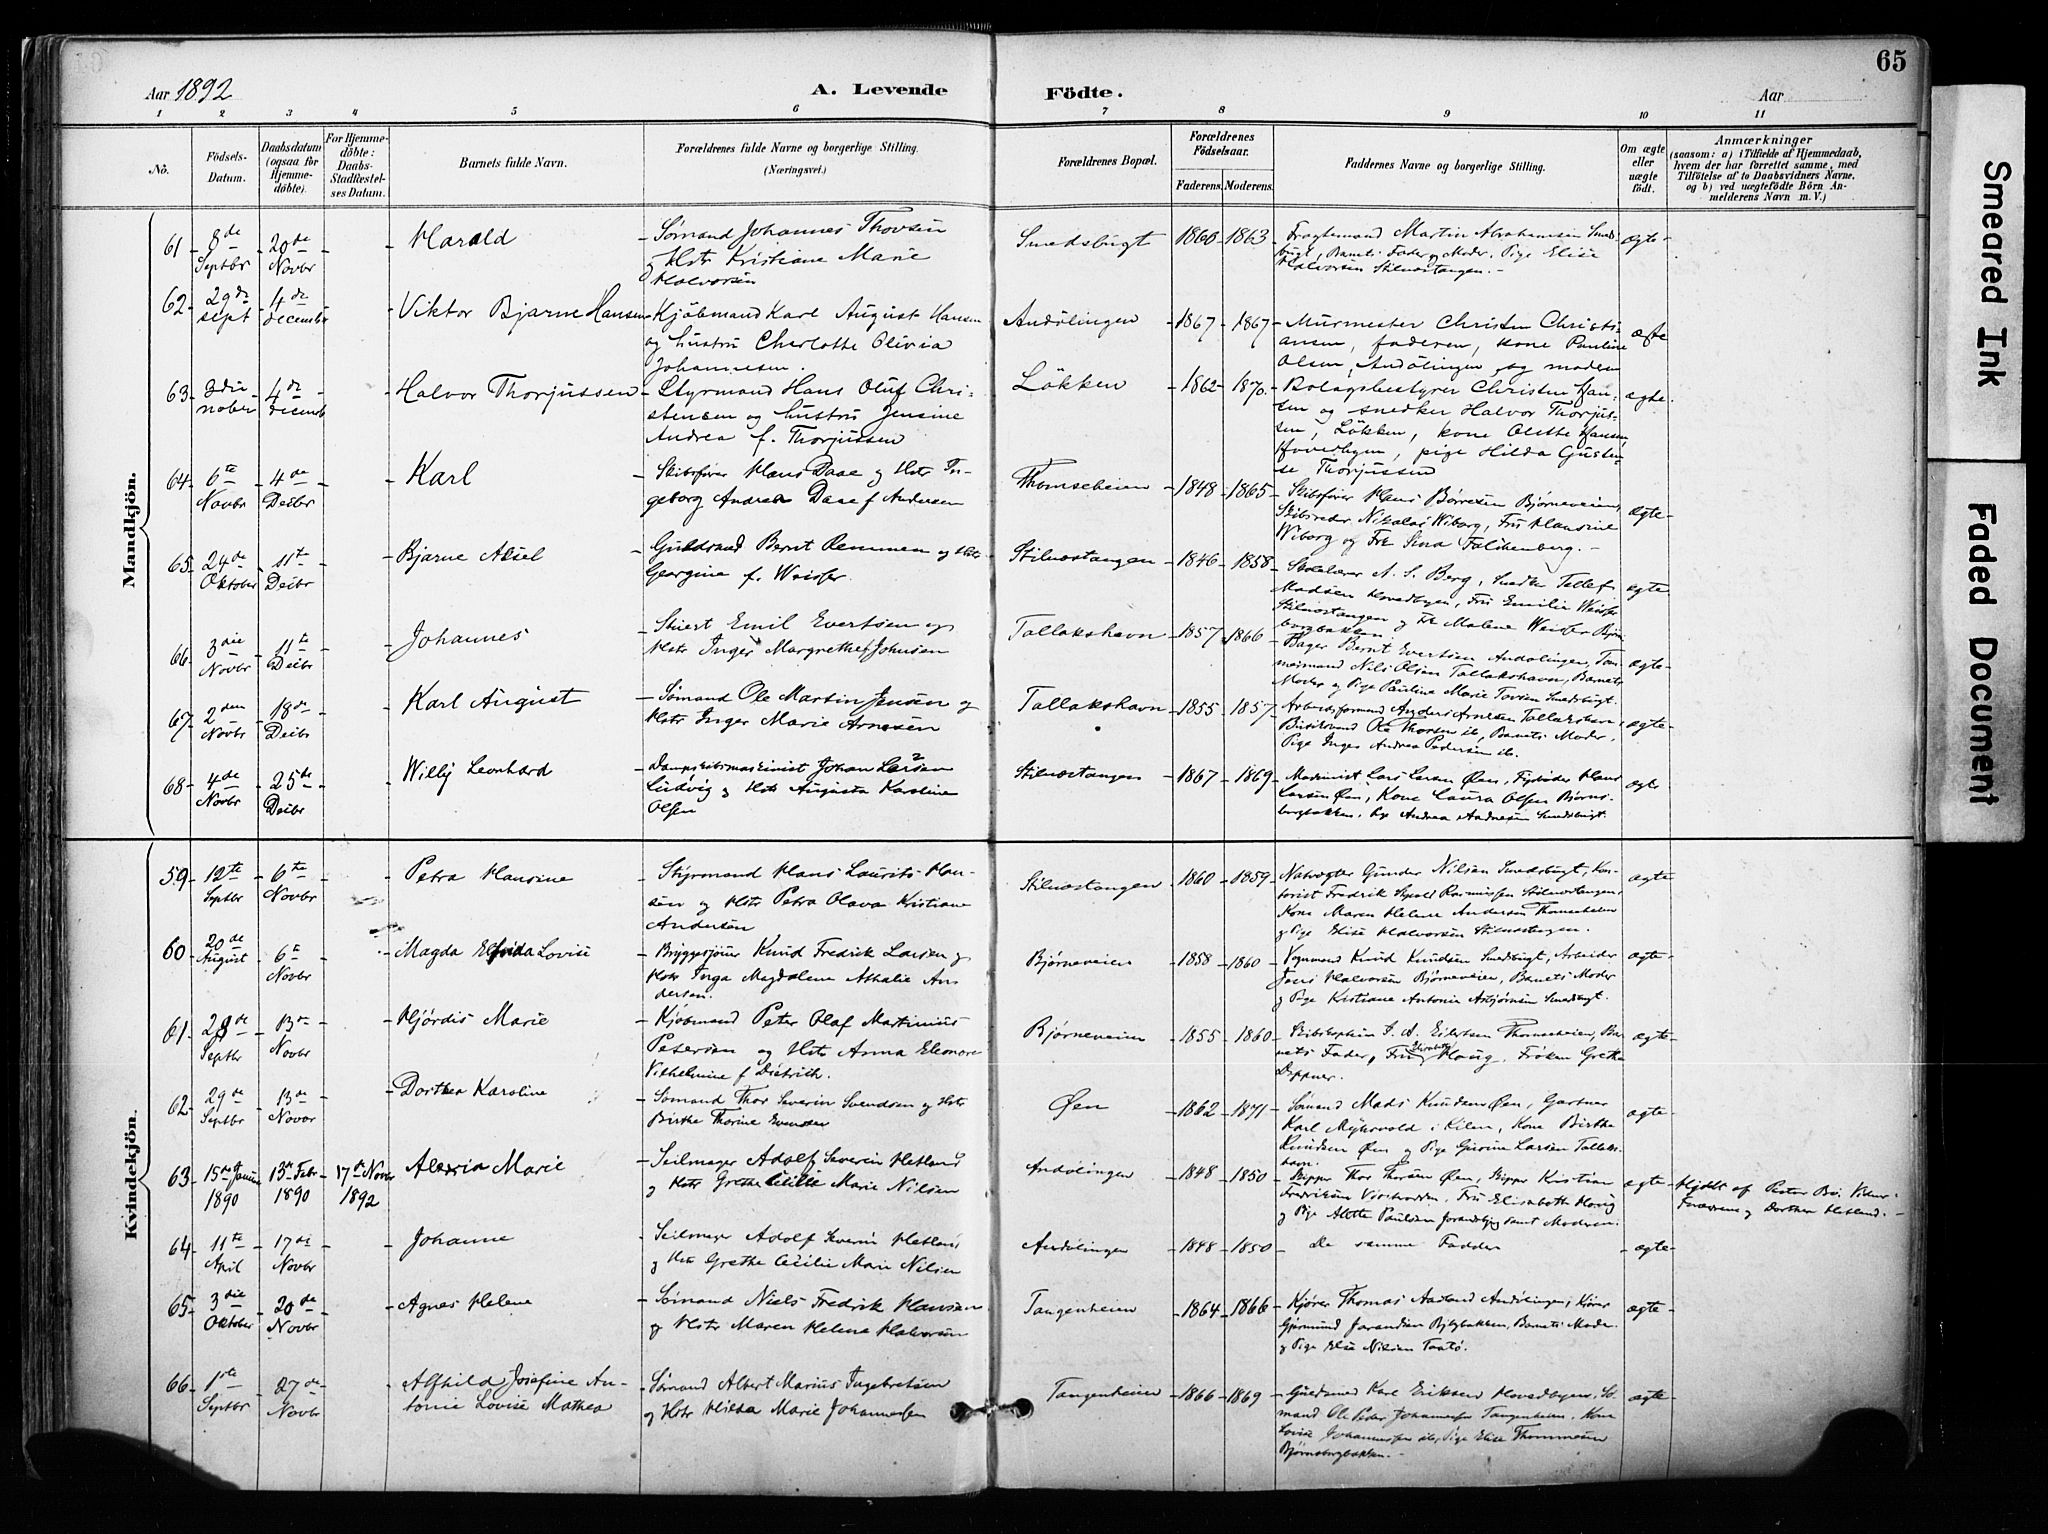 65
Aar 1892
A. Levende
Födte.
Aar
1 2 3 4 5 6 7 8 9 10 11
No.
Födsels-Datum.
Daabsdatum (ogsaa for Hjemmedöbte).
For Hjemmedöbte: Daabs-Stadfæstelses Datum.
Barnets fulde Navn.
Forældrenes fulde Navne og borgerlige Stilling. (Næringsvei.)
Forældrenes Bopæl.
Forældrenes Födselsaar.
Faderens. Moderens.
Faddernes Navne og borgerlige Stilling.
Om ægte eller uægte födt.
Anmærkninger
(saasom: a) i Tilfælde af Hjemmedaab, hvem der har forrettet samme, med Tilföielse af to Daabsvidners Navne, og b) ved uægtefödte Börn Anmelderens Navn m. V.)
Mandkjön.
61 8de Septbr 20de Novbr Harald
Sømand Johannes Thovsen
og Hstr Kristiane Marie
Halvorsen
Smedsbugt 1860 1863
Fragtemand Martin Abrahamsen Smedsbugt, Barnets Fader og Moder, Pige Elise
Halvorsen Stilnestangen.
ægte
62 29de sept 4de december Viktor Bjarne Hansen
Kjöbmand Karl August Hansen
og hustru Charlotte Olivia
Johannesen.
Andölingen 1867 1867
Murmester Christen Christi-
ansen, faderen, kone Pauline
Olsen, Andölingen og moderen
ægte
63 3die nober 4de decemb Halvor Thorjussen
Styrmand Hans Oluf Chri-
stensen og hustru Jensine
Andrea f. Thorjussen
Lökken 1862 1870
Bolagsbestyrer Christen Han-
sen og snedker Halvor Thorjus-
sen, Lökken, kone Olette Hansen,
Hovedbyen, pige Hilda Gusta-
se Thorjussen
ægte
64 6te Novbr 4de Decbr Karl
Skibsfører Hans Daae og Hstr In-
geborg Andrea Daae f Andersen
Thomseheien 1848 1865
Skibsfører Hans Børresen Bjørneveien,
Skibsreder Nikolai Wiborg, Fru Hansine
Wiborg og Frk Sina Falkenberg.
ægte
65 24de Oktober 11te Decbr Bjarne Aksel
Guldsmed Bernt Remmen og Hstr
Georgine f. Weisser.
Stilnestangen 1846 1858
Skolelærer A. S. Berg, Smed Tellef
Madsen Hovedbyen, Fru Emilie Weisser
Stilnestangen og Frk Malene Weisser Bjørnsborgbakken.
ægte
66 3die Novbr 11te Decbr Johannes
Stuert Emil Evertsen og
Hstr Inger Margrethe f Johnsen
Tallakshavn 1857 1866
Bager Bernt Evertsen Andølingen, Tøm-
mermand Nils Olsen Tallakshavn, Barnets
Moder og Pige Pauline Marie Tovsen Smedsbugt.
ægte
67 2den Novbr 18de Decbr Karl August
Sømand Ole Martin Jensen og
Hstr Inger Marie Arnesen
Tallakshavn 1855 1857
Arbeidsformand Anders Arnesen Tallakshavn,
Ole Thorsen ib, Barnets Moder,
Pige Inger Andrea Pedersen ib.
ægte
68 4de Novbr 25de Decbr Willy Leonhard
Dampskibsmaskinist Johan Larsen
Ludvig og Hstr Augusta Karoline
Olsen
Stilnestangen 1867 1869
Maskinist Lars Larsen Øen, Hans
Larsen Øen, Kone Laura Olsen Bjørns-
borgbakken, Pige Andrea Andresen Smedsbugt.
ægte
Kvindekjön.
59 12te Septbr 6te Novbr Petra Hansine
Styrmand Hans Laurits Han-
sen og Hstr Petra Olava Kristiane
Andersen
Stilnestangen 1860 1859
Natvægter Gunder Nilsen Smedsbugt, Kon-
torist Fredrik Rasmussen Stilnestangen,
Kone Maren Helene Andersen Thomseheien
og Pige Elise Halvorsen Stilnestangen.
ægte
60 20de August 6te Novbr Magda Elfrida Lovise
Bryggesjouer Knud Fredrik Larsen og
Hstr Inga Magdalene Athalie An-
dersen.
Bjørneveien 1858 1860
Vognmand Knud Knudsen Smedsbugt, Arbeider
Halvorsen Bjørneveien, Barnets Moder
og Pige Kristiane Antonie Asbjørnsen Smedsbugt.
ægte
61 28de Septbr 13de Novbr Hjördis Marie
Kjøbmand Peter Olaf Martinius
Petersen og Hstr Anna Eleonore
Vilhelmine f Dietrich.
Bjørneveien 1855 1860
Skibskaptein J. A. Eilertsen Thomseheien, Bar-
nets Fader, Fru Elisabeth Houg, Frøken Grethe
Deppner.
ægte
62 29de Septbr 13de Novbr Dorthea Karoline
Sømand Thor Severin Svendsen og Hstr
Birthe Thorine Evensen
Øen 1862 1871
Sømand Mads Knudsen Øen, Gartner
Karl Myhrvold i Kilen, Kone Birthe
Knudsen Øen og Pige Gurine Larsen Tallaks-
havn.
ægte
63 15de Januar 1890 13de Febr 1890 17de Novbr 1892 Alexia Marie
Seilmager Adolf Severin Hetland
og Hstr Grethe Cecilie Marie Nilsen
Andølingen 1848 1850
Skipper Thor Thorsen Øen, Skipper Kristian
Fredriksen, Fru Elisabeth Houg
og Pige Alette Paulsen samt Moderen.
ægte
Hjddt af Pastor
og Dorthea Hetland.
64 11te April 17de Novbr Johanne
Seilmager Adolf Severin Hetland
og Hstr Grethe Cecilie Marie Nilsen
Andølingen 1848 1850
De samme Faddere
ægte
65 3die Oktober 20de Novbr Agnes Helene
Sømand Niels Fredrik Hansen
og Hstr Maren Helene Halvorsen
Tangenheien 1864 1866
Kjører Thomas Aasland Andølingen, Kjører
Gjermund Jorandsen, Barnets Moder
og Pige Else Nilsen Taatø.
ægte
66 1ste Septbr 27de Novbr Alfhild Josefine An-
tonie Lovise Mathea
Sømand Albert Marius Ingebretsen
og Hstr Hilda Marie Johannessen
Tangenheien 1866 1869
Guldsmed Karl Eriksen Hovedbyen, Sø-
mand Ole Peder Johannessen Tangenheien, Kone
Lovise Johannessen ib, Pige Elise Thommesen
Bjørnsborgbakken.
ægte
Smeared Ink
Faded Document